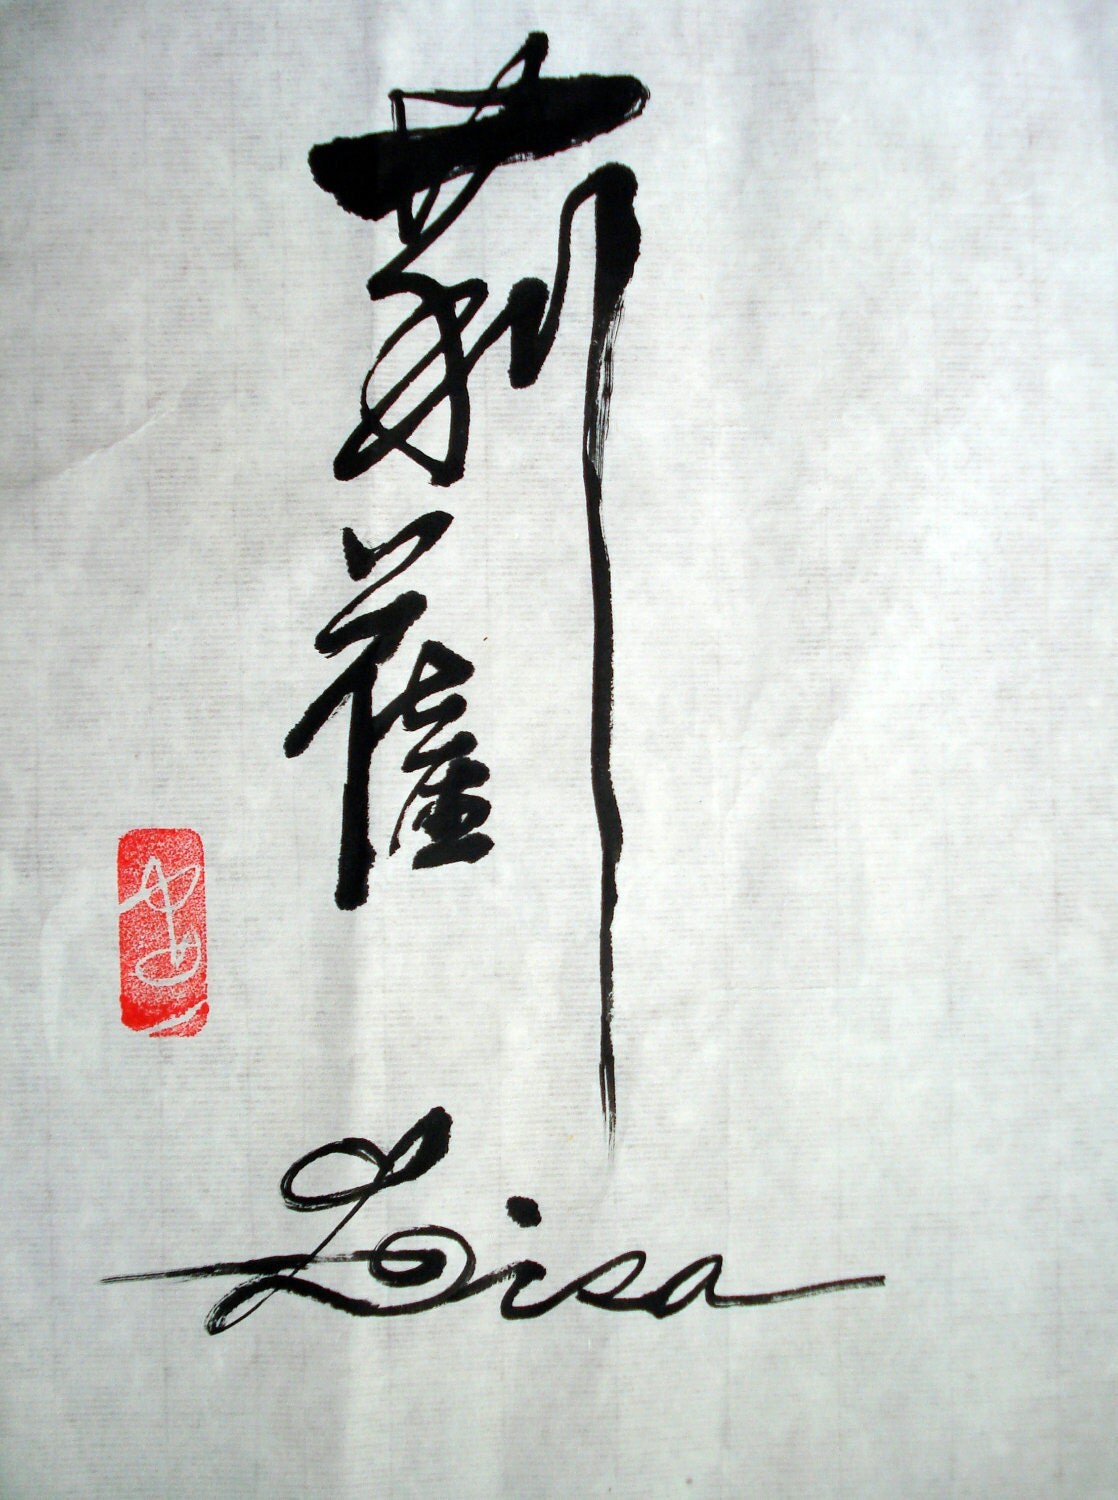 莉薩
Lisa